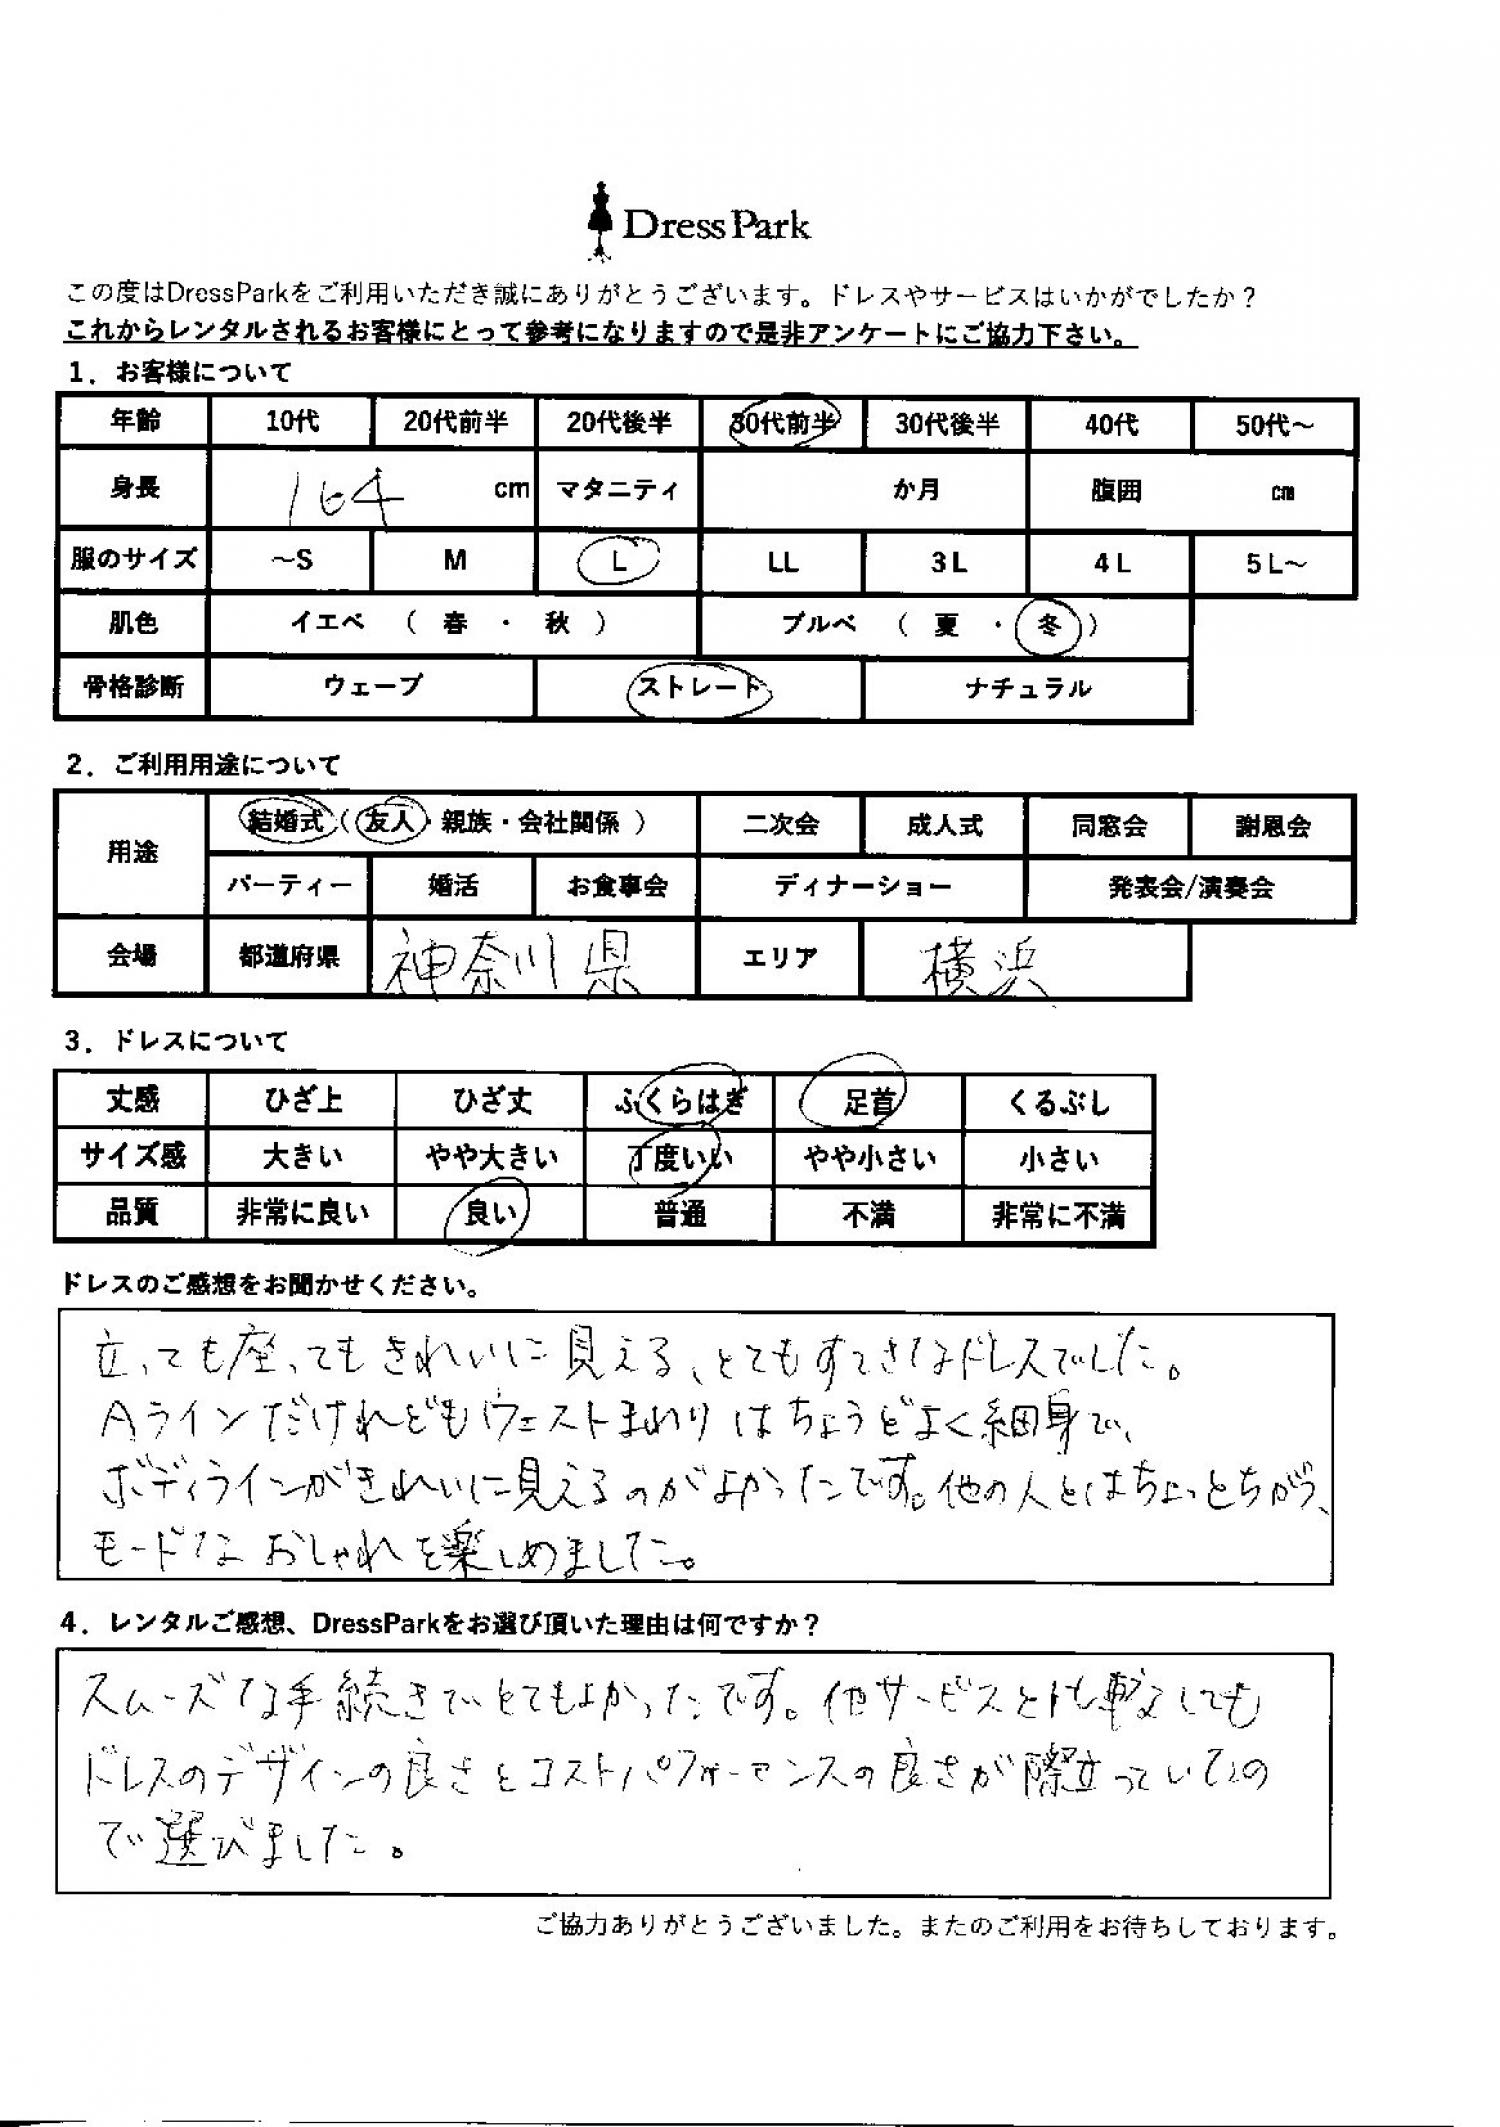 DressPark
この度はDressParkをご利用いただき誠にありがとうございます。ドレスやサービスはいかがでしたか？
これからレンタルされるお客様にとって参考になりますので是非アンケートにご協力下さい。
1．お客様について
年齢 10代 20代前半 20代後半 30代前半 30代後半 40代 50代～
身長 164 cm マタニティ か月 腹囲 cm
服のサイズ ～S M L LL 3L 4L 5L～
肌色 イエベ （ 春 ・ 秋 ） ブルベ （ 夏 ・ 冬 ）
骨格診断 ウェーブ ストレート ナチュラル
2．ご利用用途について
用途 結婚式（友人・親族・会社関係 ） 二次会 成人式 同窓会 謝恩会
パーティー 婚活 お食事会 ディナーショー 発表会/演奏会
会場 都道府県 神奈川県 エリア 横浜
3．ドレスについて
丈感 ひざ上 ひざ丈 ふくらはぎ 足首 くるぶし
サイズ感 大きい やや大きい 丁度いい やや小さい 小さい
品質 非常に良い 良い 普通 不満 非常に不満
ドレスのご感想をお聞かせください。
立っても座ってもきれいに見える、とてもすてきなドレスでした。
Aラインだけれどもウエストまわりはちょうどよく細身で、
ボディラインがきれいに見えるのがよかったです。他の人とはちょっとちがう、
モードなおしゃれを楽しめました。
4．レンタルご感想、DressParkをお選び頂いた理由は何ですか？
スムーズな手続きでとてもよかったです。他サービスと比較しても
ドレスのデザインの良さとコストパフォーマンスの良さが際立っていたの
で選びました。
ご協力ありがとうございました。またのご利用をお待ちしております。